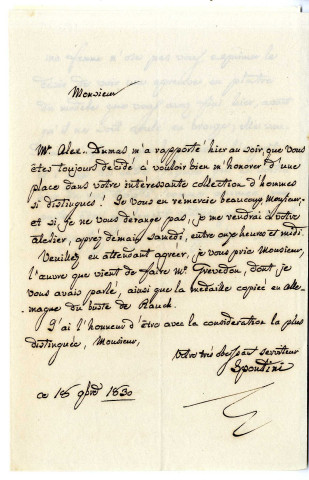 Monsieur
Mr. Alex. Dumas m'a rapporté hier au soir, que vous
êtes toujours décidé à vouloir bien m'honorer d'une
place dans votre intéressante collection d'hommes
si distingués! Je vous en remercie beaucoup, Monsieur,
et si je ne vous dérange pas, je me rendrai à votre
atelier, après demain samedi, entre onze heures et midi.
Veuillez en attendant agréer, je vous prie Monsieur,
l'œuvre que vient de faire Mr. Grevedon, dont je
vous avais parlé, ainsi que la médaille copiée en Alle-
magne du buste de Rauch.
J'ai l'honneur d'être avec la considération la plus
distinguée, Monsieur,
Votre très obéissant serviteur
Spontini
ce 18 9bre 1830